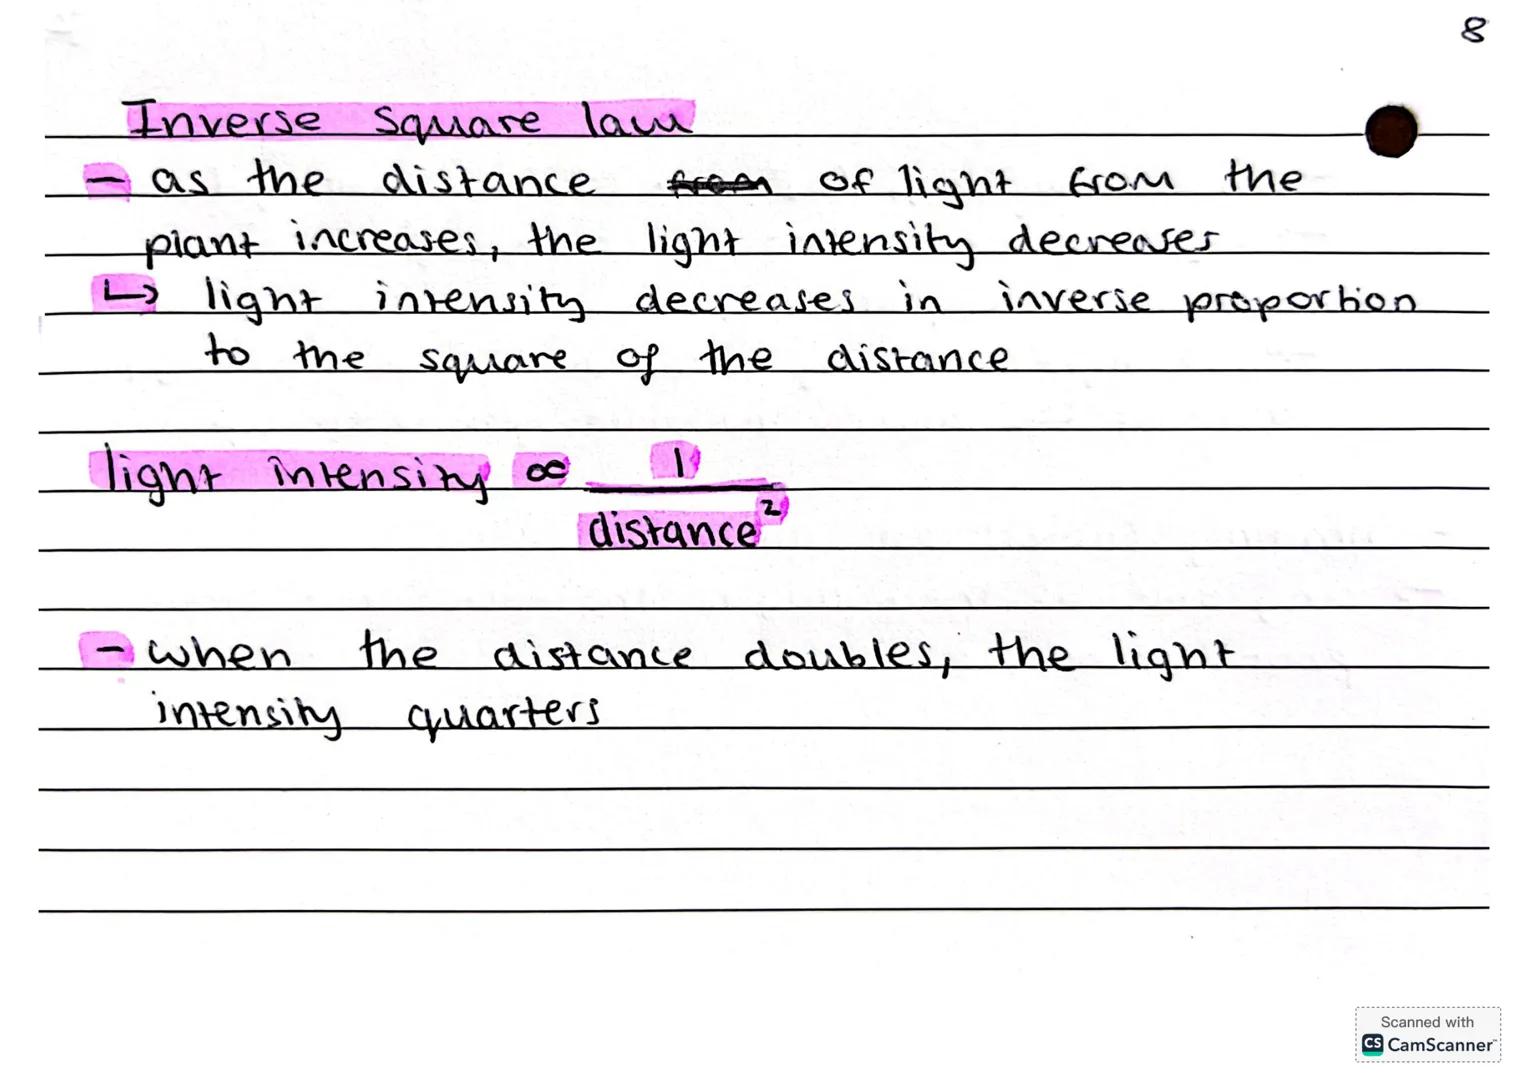 8
Inverse square law
- as the distance from of light from the
plant increases, the light intensity decreases
↳ light intensity decreases in inverse proportion
to the square of the distance
light intensity ∝ 1
distance²
- when the distance doubles, the light
intensity quarters
Scanned with
CS CamScanner